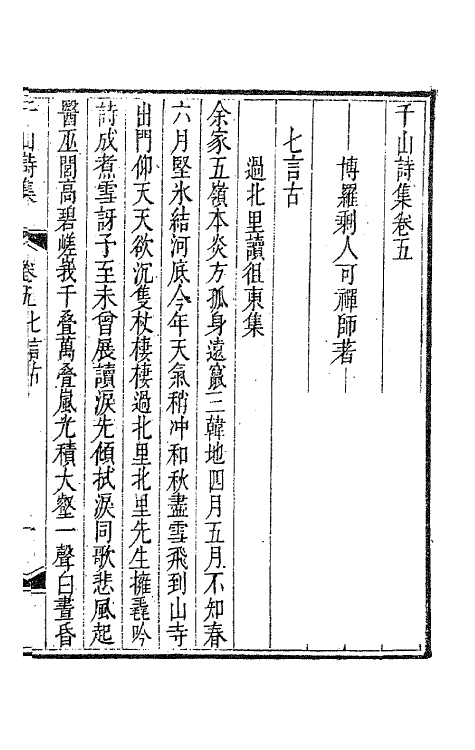 千山詩集卷五
博羅剩人可禪師著
七言古
過北里讀徂東集
余家五嶺本炎方孤身遠竄三韓地四月五月不知春
六月堅氷結河底今年天氣稍冲和秋盡雪飛到山寺
出門仰天天欲沉隻杖棲棲過北里北里先生擁毳吟
詩成煮雪訝予至未曾展讀淚先傾拭淚同歌悲風起
醫巫閭高碧嵯峩千叠萬叠嵐光積大壑一聲白晝昏
千山詩集 卷五 七言古 一